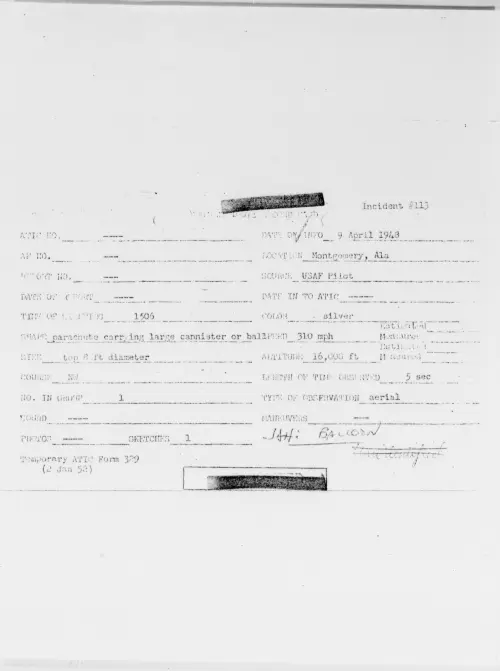 Incident #113
ATIC NO. ---- DATE OF INFO 9 April 1948
AF NO. ---- LOCATION Montgomery, Ala
REPORT NO. ---- SOURCE USAF Pilot
DATE OF REPORT ---- DATE IN TO ATIC ----
TIME OF SIGHTING 1506 COLOR silver
SHAPE parachute carrying large cannister or ball SPEED 310 mph Estimated Measured
SIZE top 8 ft diameter ALTITUDE 16,000 ft Estimated Measured
COURSE NW LENGTH OF TIME OBSERVED 5 sec
NO. IN GROUP 1 TYPE OF OBSERVATION aerial
SOUND ---- MANEUVERS ----
PHOTOS ---- SKETCHES 1 BALLOON
Temporary ATIC Form 329
(2 Jan 52)